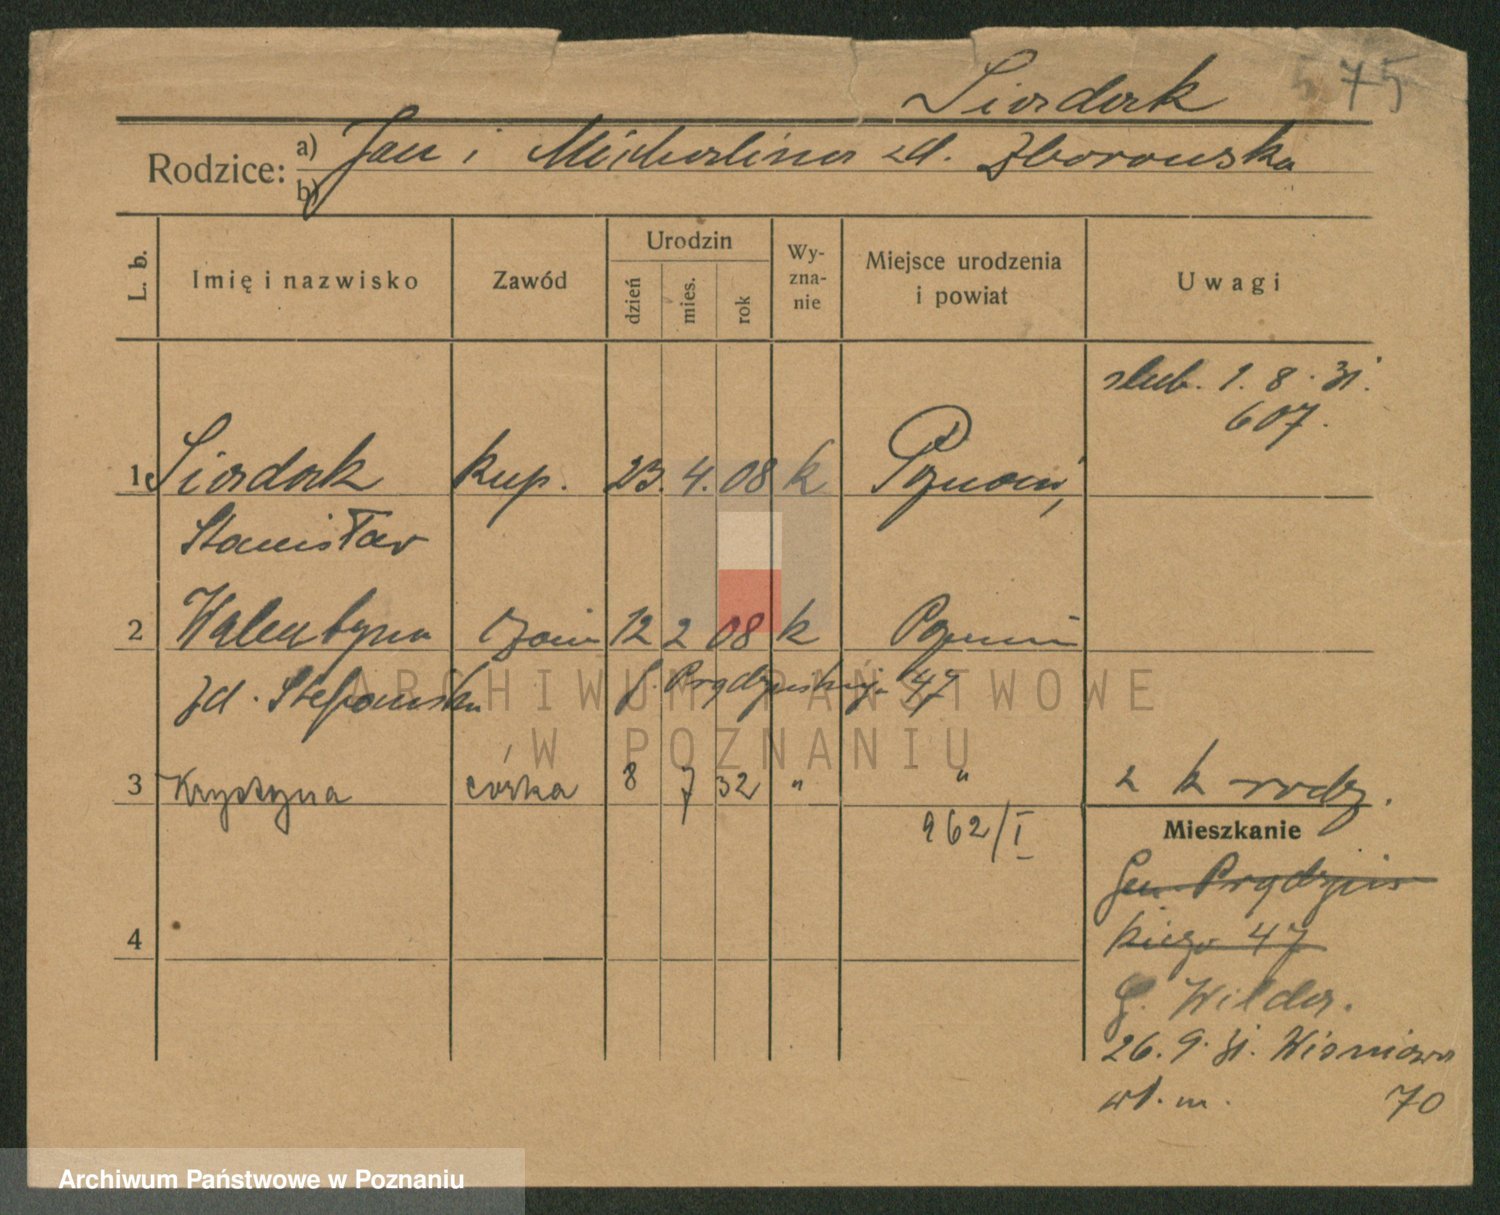 Siodork 575
Rodzice: a) Jan i Michalina zd. Zborowska
b)
L. b. Imię i nazwisko Zawód Urodzin dzień mies. rok Wy-zna-nie Miejsce urodzenia i powiat Uwagi
ślub. 1. 8. 31.
607.
1. kup. 23. 4. 08 k Poznań,
Stanisław
2 Walentyna żona 12 2 08 k Poznań
zd. Stefańska G. Prądzyńskiego 47
3 Krystyna córka 8 7 32 " " 2 k rodz.
962/I
Mieszkanie
Gen. Prądzyńs
kiego 47
4
G. Wilda.
26. 9. 31. Wiśniowa
wł. m. 70
ARCHIWUM PAŃSTWOWE
W POZNANIU
Archiwum Państwowe w Poznaniu